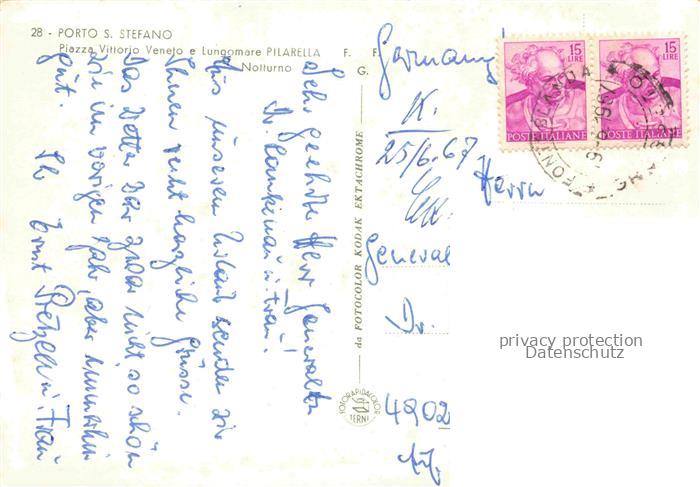 28 - PORTO S. STEFANO
Piazza Vittorio Veneto e Lungomare PILARELLA
Notturno
F. F.
G.
Germany
K.
25/6.67
Herrn
General
Dr.
4902
Sehr geehrter Herr Generaldir.
Dr. u. Frau!
Aus unserem Urlaub senden wir
Ihnen recht herzliche Grüsse.
Das Wetter war zwar nicht so schön
wie im vorigen Jahr, aber immerhin
gut.
Ihr Ernst u. Frau
da FOTOCOLOR KODAK EKTACHROME
FOTORAPIDACOLOR
TERNI
15
LIRE
POSTE ITALIANE
15
LIRE
POSTE ITALIANE
privacy protection
Datenschutz